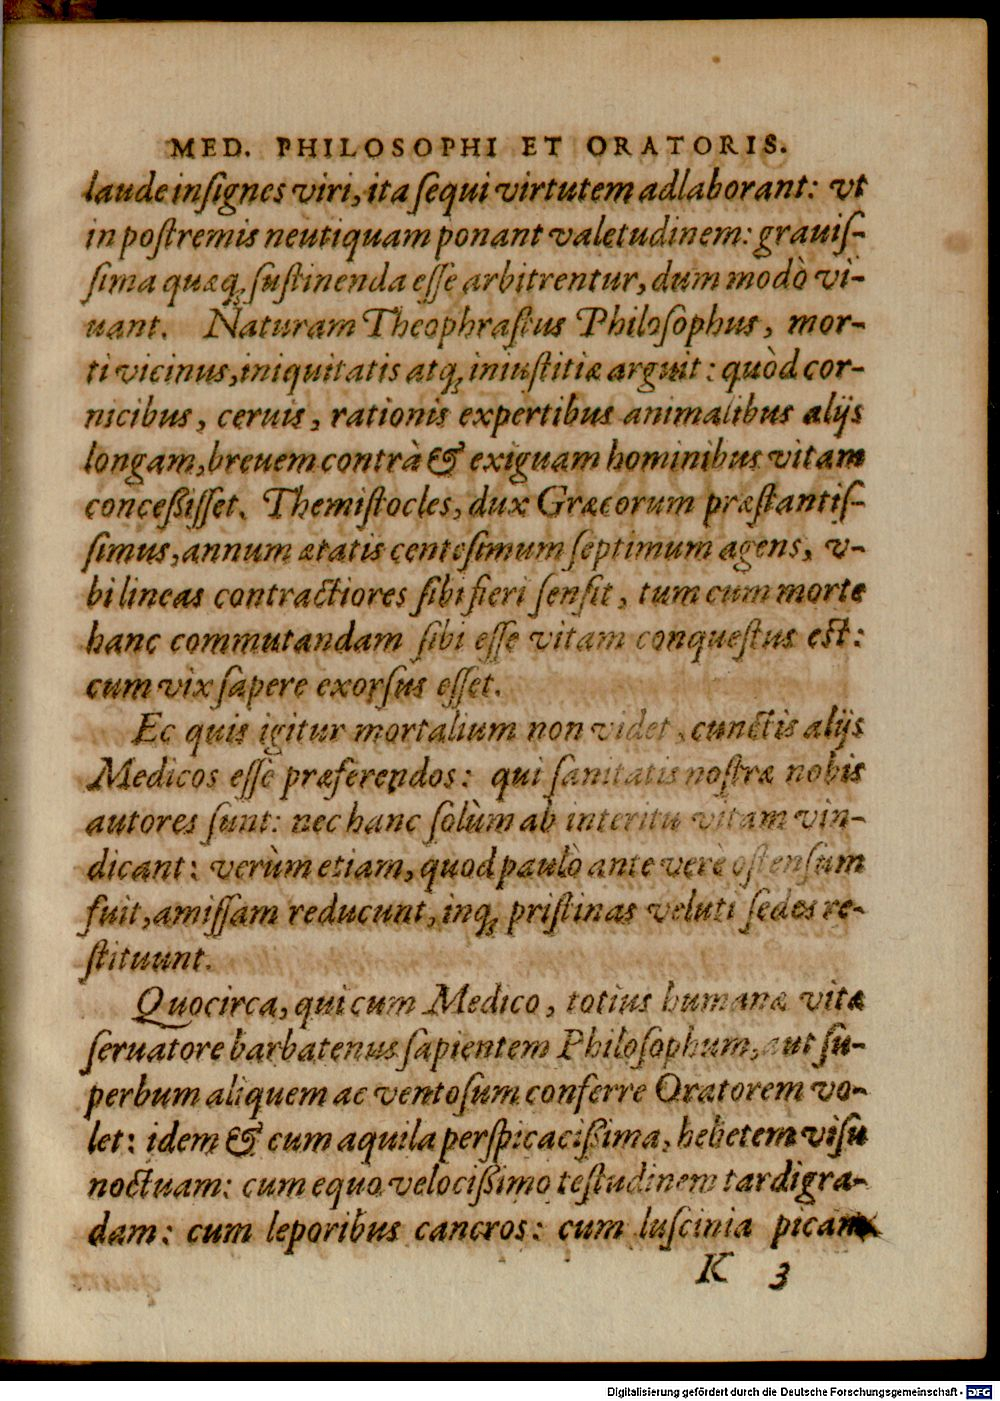 MED. PHILOSOPHI ET ORATORIS.
laude inſignes viri, ita ſequi virtutem adlaborant: vt
in poſtremis neutiquam ponant valetudinem: grauiſ-
ſima quæq; ſuſtinenda eſſe arbitrentur, dum modò vi-
uant. Naturam Theophraſtus Philoſophus, mor-
ti vicinus, iniquitatis atq; iniuſtitiæ arguit: quòd cor-
nicibus, ceruis, rationis expertibus animalibus alijs
longam, breuem contrà & exiguam hominibus vitam
conceßiſſet. Themiſtocles, dux Græcorum præſtantiſ-
ſimus, annum ætatis centeſimum ſeptimum agens, v-
bi lineas contractiores ſibi fieri ſenſit, tum cum morte
hanc commutandam ſibi eſſe vitam conqueſtus eſt:
cum vix ſapere exorſus eſſet.
Ec quis igitur mortalium non videt, cunctis alijs
Medicos eſſe præferendos: qui ſanitatis noſtræ nobis
autores ſunt: nec hanc ſolùm ab interitu vitam vin-
dicant: verùm etiam, quod paulò ante verè oſtenſum
fuit, amiſſam reducunt, inq; priſtinas veluti ſedes re-
ſtituunt.
Quocirca, qui cum Medico, totius humanæ vitæ
ſeruatore barbatenus ſapientem Philoſophum, aut ſu-
perbum aliquem ac ventoſum conferre Oratorem vo-
let: idem & cum aquila perſpicacißima, hebetem viſu
noctuam: cum equo velocißimo teſtudinem tardigra-
dam: cum leporibus cancros: cum luſcinia picam
K 3
Digitalisierung gefördert durch die Deutsche Forschungsgemeinschaft - DFG